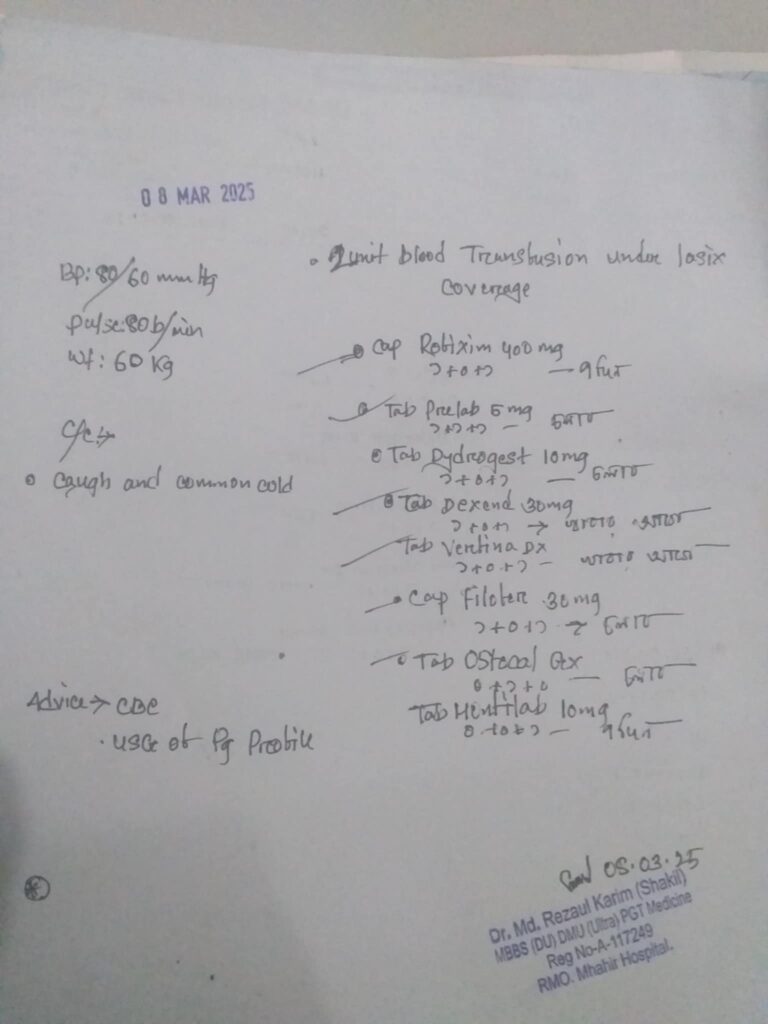 08 MAR 2025
Bp: 80/60 mm Hg
pulse: 80 b/min
Wt: 60 Kg
C/C:→
• Caugh and common cold
Advice → CBC
• USG of Pg Profile
• 2 unit blood Transfusion under lasix
coverage
• Cap Rofixim 400 mg
১+০+১ — ৭ দিন
• Tab Prelab 5 mg
১+১+১ — চলবে
• Tab Dydrogest 10mg
১+০+১ — চলবে
• Tab Dexend 30mg
১+০+১ → খাবার আগে
Tab Vertina Dx
১+০+১ — খাবার আগে
• Cap Filofer 30mg
১+০+১ → চলবে
• Tab Ostocal Gx
০+১+০ — চলবে
Tab Montilab 10mg
০+০+১ — ৭ দিন
08.03.25
Dr. Md. Rezaul Karim (Shakil)
MBBS (DU) DMU (Ultra) PGT Medicine
Reg No-A-117249
RMO. Mhahir Hospital.